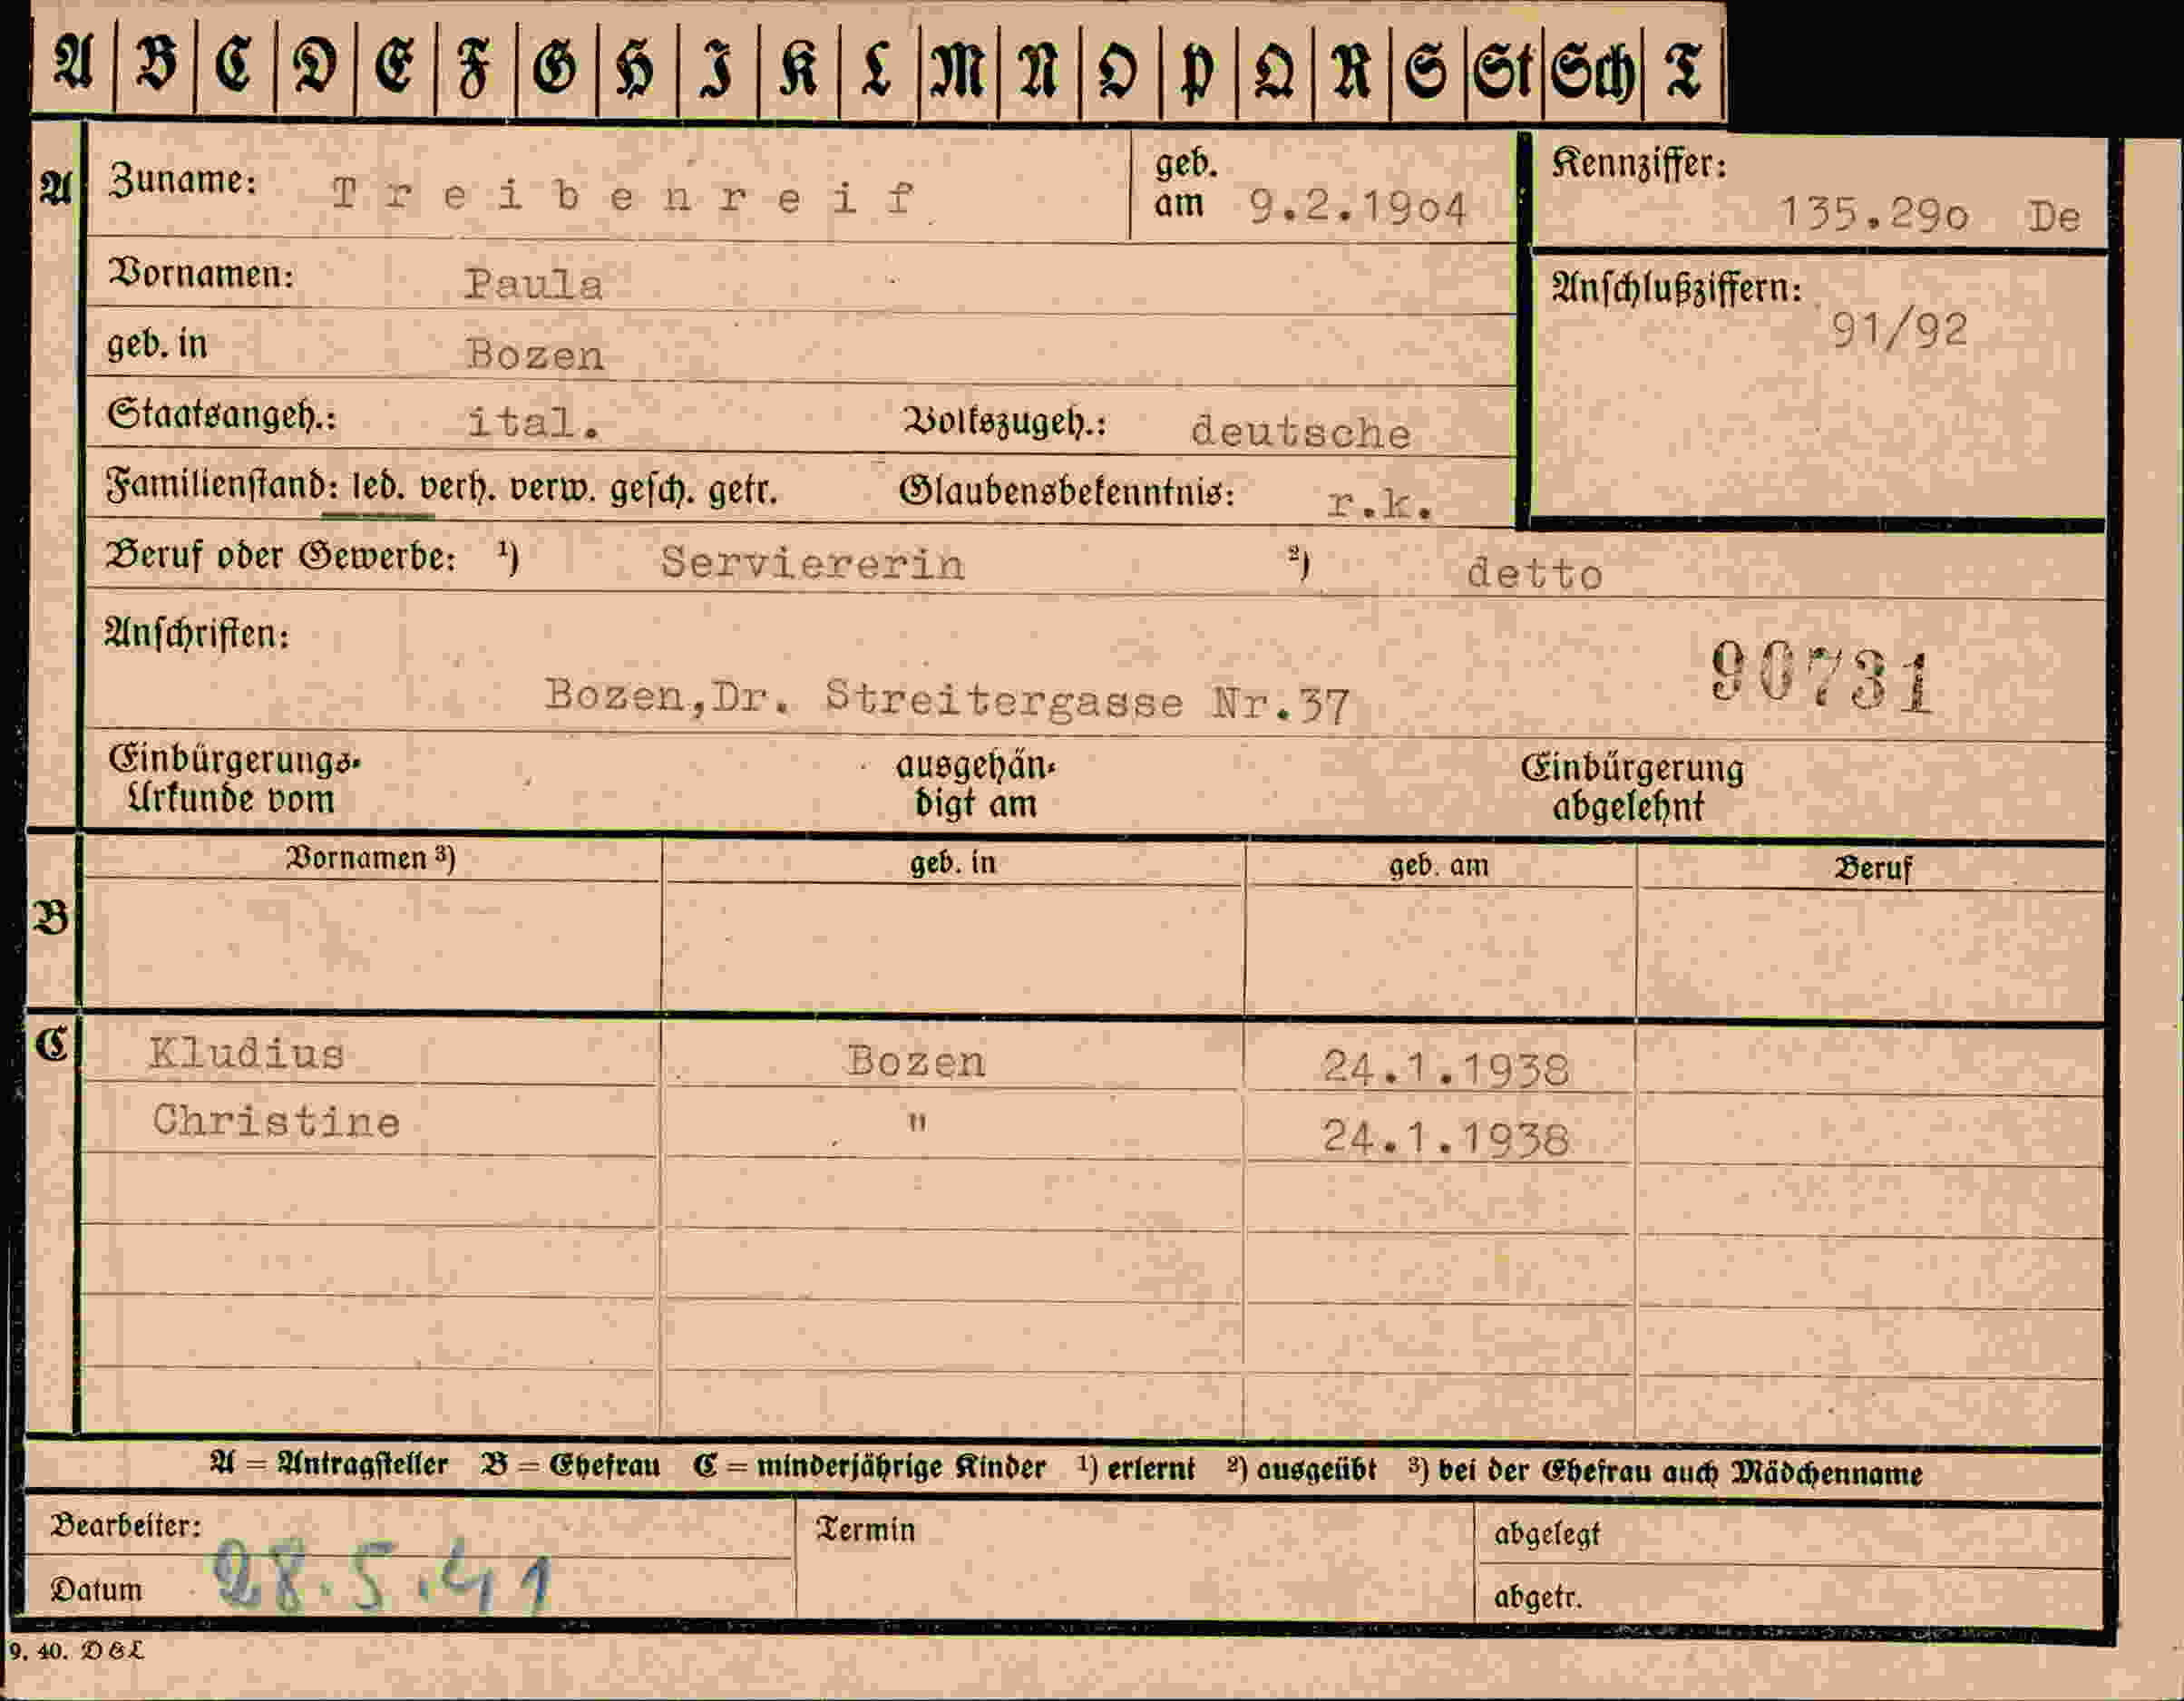 A B C D E F G H I K L M N O P Q R S St Sch T
A Zuname: Treibenreif geb. am 9.2.19o4 Kennziffer: 135.29o De
Vornamen: Paula Anschlußziffern: 91/92
geb. in Bozen
Staatsangeh.: ital. Volkszugeh.: deutsche
Familienstand: led. verh. verw. gesch. getr. Glaubensbekenntnis: r.k.
Beruf oder Gewerbe: ¹) Serviererin ²) detto
Anschriften:
Bozen,Dr. Streitergasse Nr.37 90731
Einbürgerungs- ausgehän- Einbürgerung
Urkunde vom digt am abgelehnt
Vornamen ³) geb. in geb. am Beruf
B
C Kludius Bozen 24.1.1938
Christine " 24.1.1938
A = Antragsteller B = Ehefrau C = minderjährige Kinder ¹) erlernt ²) ausgeübt ³) bei der Ehefrau auch Mädchenname
Bearbeiter: Termin abgelegt
Datum 28.5.41 abgetr.
9. 40. DGL